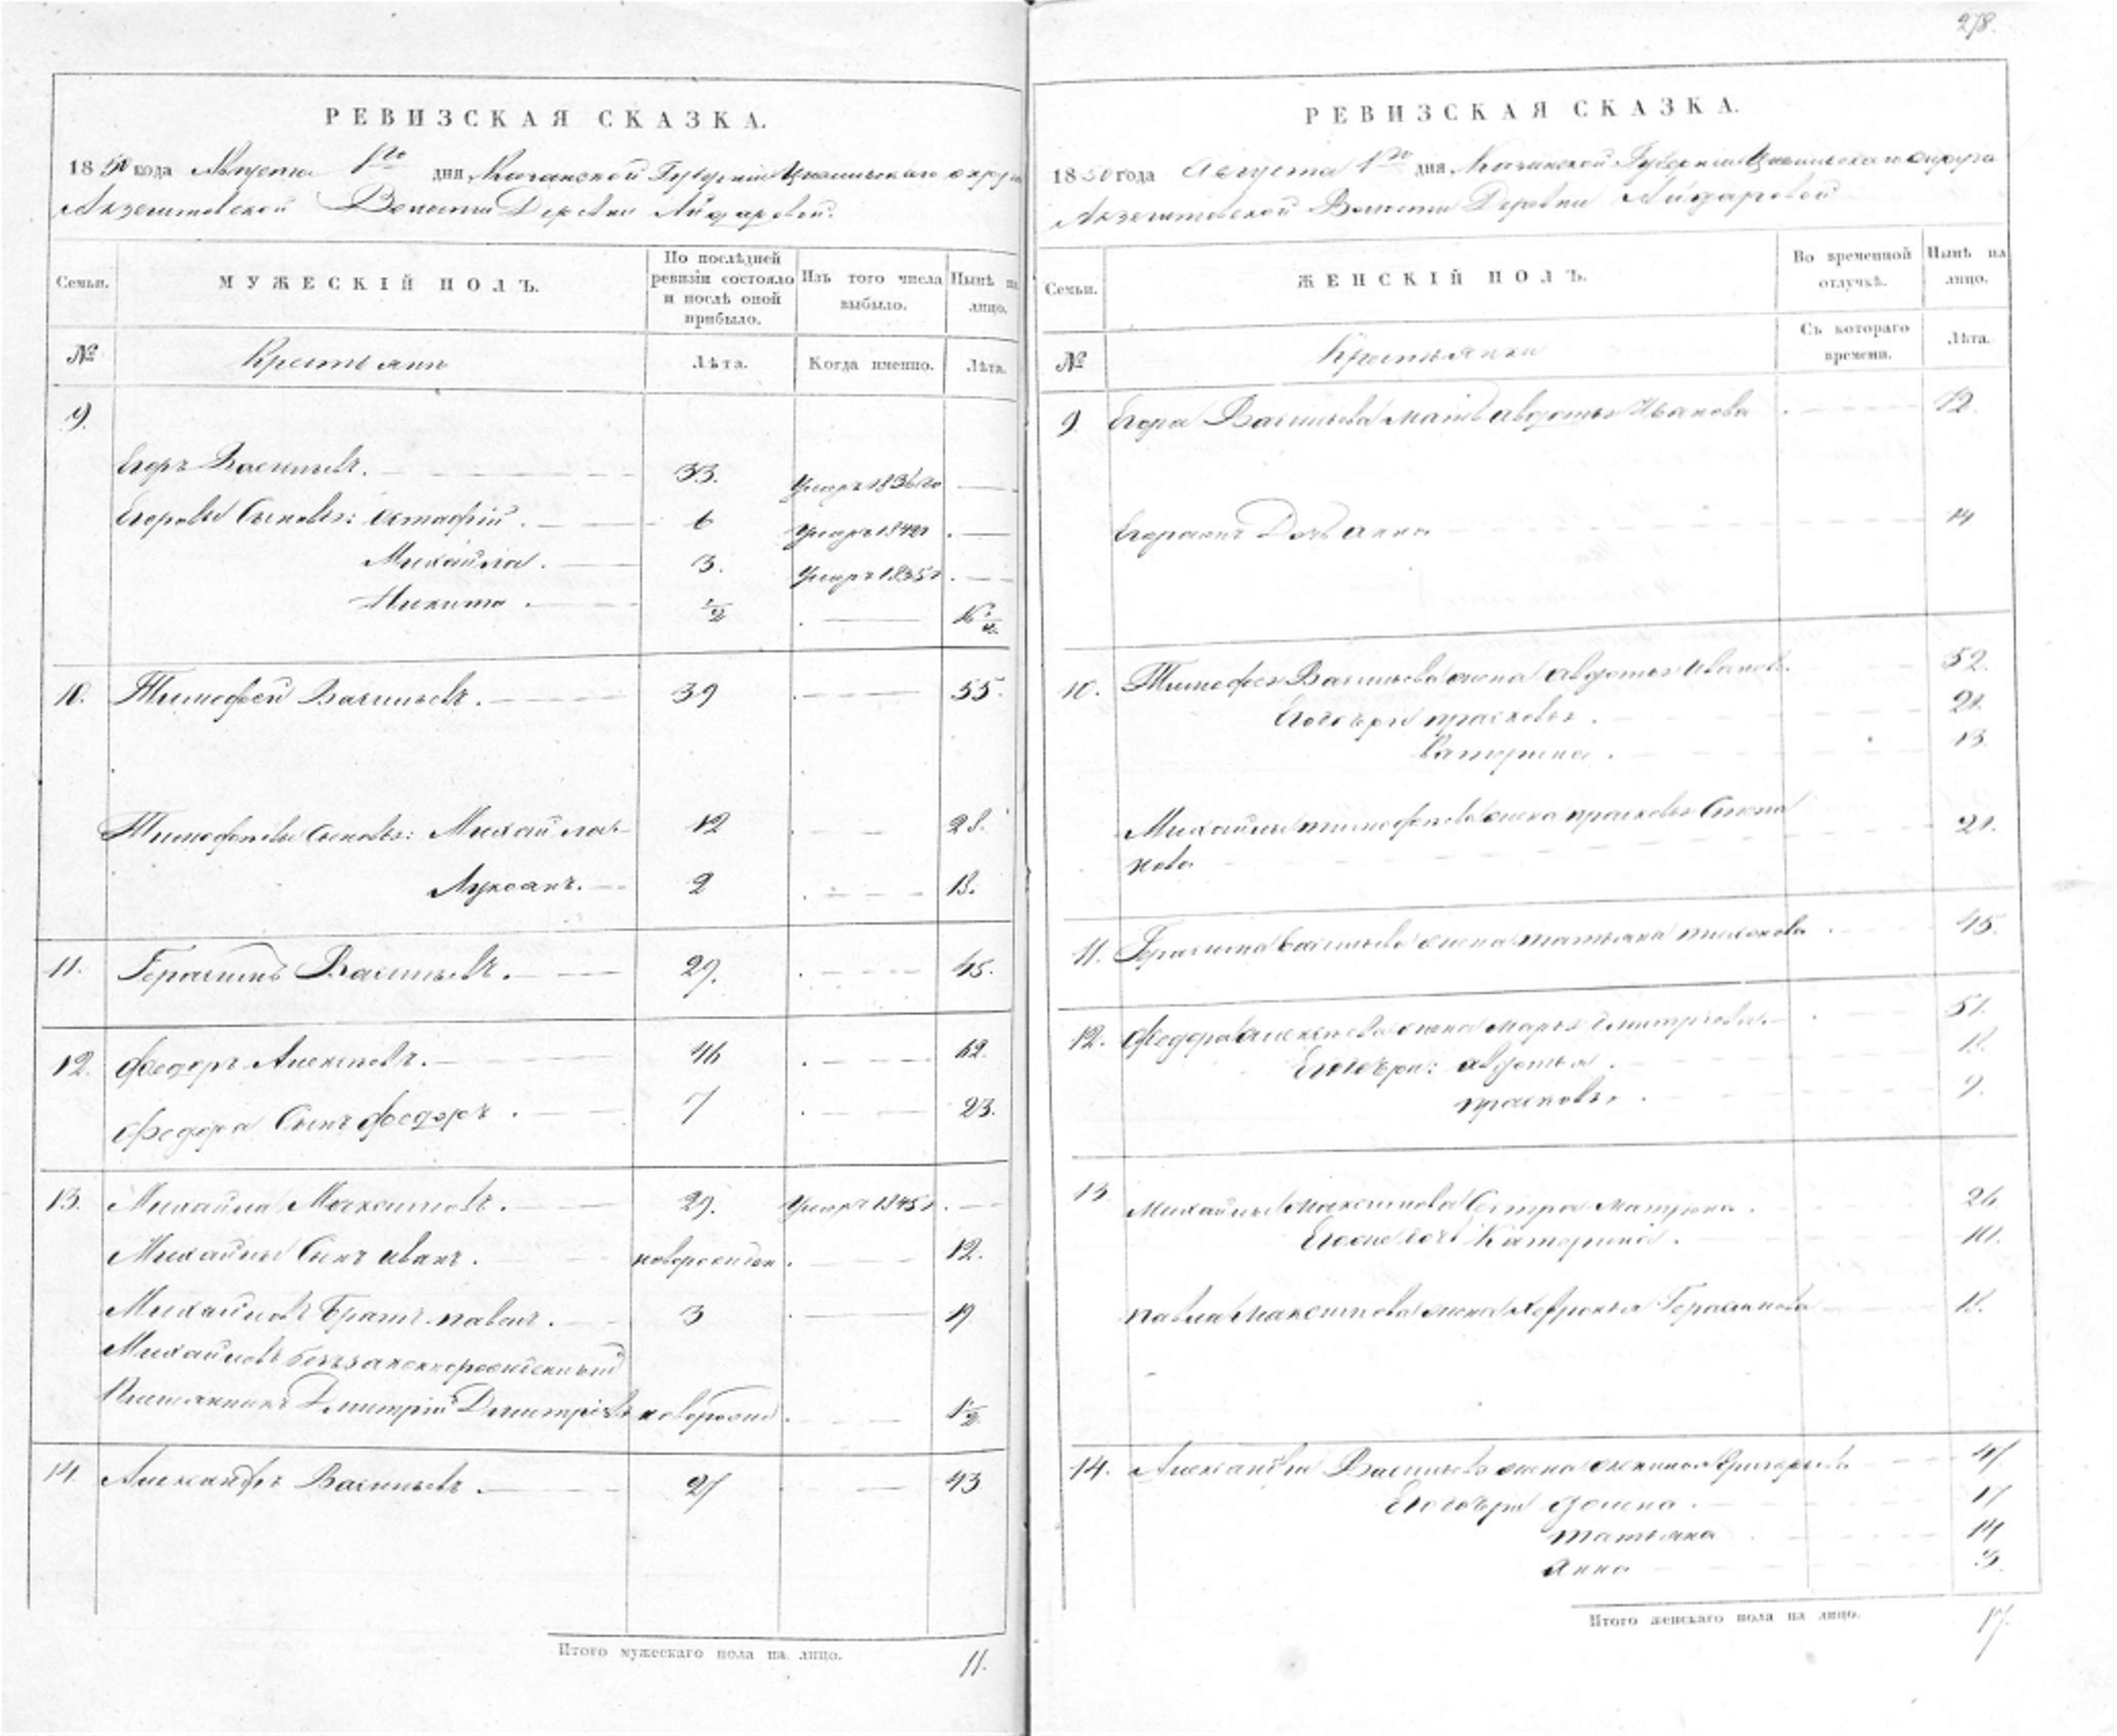 278.
РЕВИЗСКАЯ СКАЗКА.
1850 года Августа 1го дня, Казанской Губерніи Цивильскаго округа
Волости Деревни Айдаровой.
Семьи. МУЖЕСКІЙ ПОЛЪ. По послѣдней ревизіи состояло и послѣ оной прибыло. Изъ того числа выбыло. Нынѣ на лицо.
№ Крестьяне Лѣта. Когда именно. Лѣта.
9.
Егоръ Васильевъ. 33. умеръ 1836го
Егоровы Сыновья: Остафій. 6 умеръ 1842г
Михайла. 3. умеръ 1835г
Никита. 1/2 16 1/2
10. Тимофей Васильевъ. 39 55.
Тимофеевы Сыновья: Михайла 12 28.
Лукоянъ. 2 18.
11. Герасимъ Васильевъ. 29. 45.
12. Федоръ Алексѣевъ. 46 62.
Федора Сынъ Федоръ. 7 23.
13. Михайла Максимовъ. 29. умеръ 1845г.
Михайлы Сынъ Иванъ. новорожден. 12.
Михайловъ братъ Павелъ. 3 19
Михайловъ незаконнорожденный
Племянникъ Дмитрій Дмитріевъ новорожд. 1 1/2
14. Александръ Васильевъ. 27 43
Итого мужескаго пола на лицо. 11.
РЕВИЗСКАЯ СКАЗКА.
1850 года Августа 1го дня Казанской Губерніи Цивильскаго округа
Волости Деревни Айдаровой
Семьи. ЖЕНСКІЙ ПОЛЪ. Во временной отлучкѣ. Нынѣ на лицо.
№ Крестьянки Съ котораго времени. Лѣта.
9 Егора Васильева мать Авдотья Иванова 72.
Егорова Дочь Анна 14
10. Тимофея Васильева жена Авдотья Иванов. 52.
Его дочери Прасковья. 21.
Катерина. 13.
Михайлы Тимофеева жена Прасковья Степа
нова 21.
11. Герасима Васильева жена Татьяна Тихонова 45.
12. Федора Алексѣева жена Марья Дмитріева. 51.
Его дочери: Авдотья. 18.
Прасковья. 9.
13. Михайлы Максимова Сестра Матрена. 26
Его же дочь Катерина. 10.
Павла Максимова жена Герасимова 18.
14. Александра Васильева жена Григорьева 47
Его дочери 17
Татьяна 14
Анна 3.
Итого женскаго пола на лицо. 17.